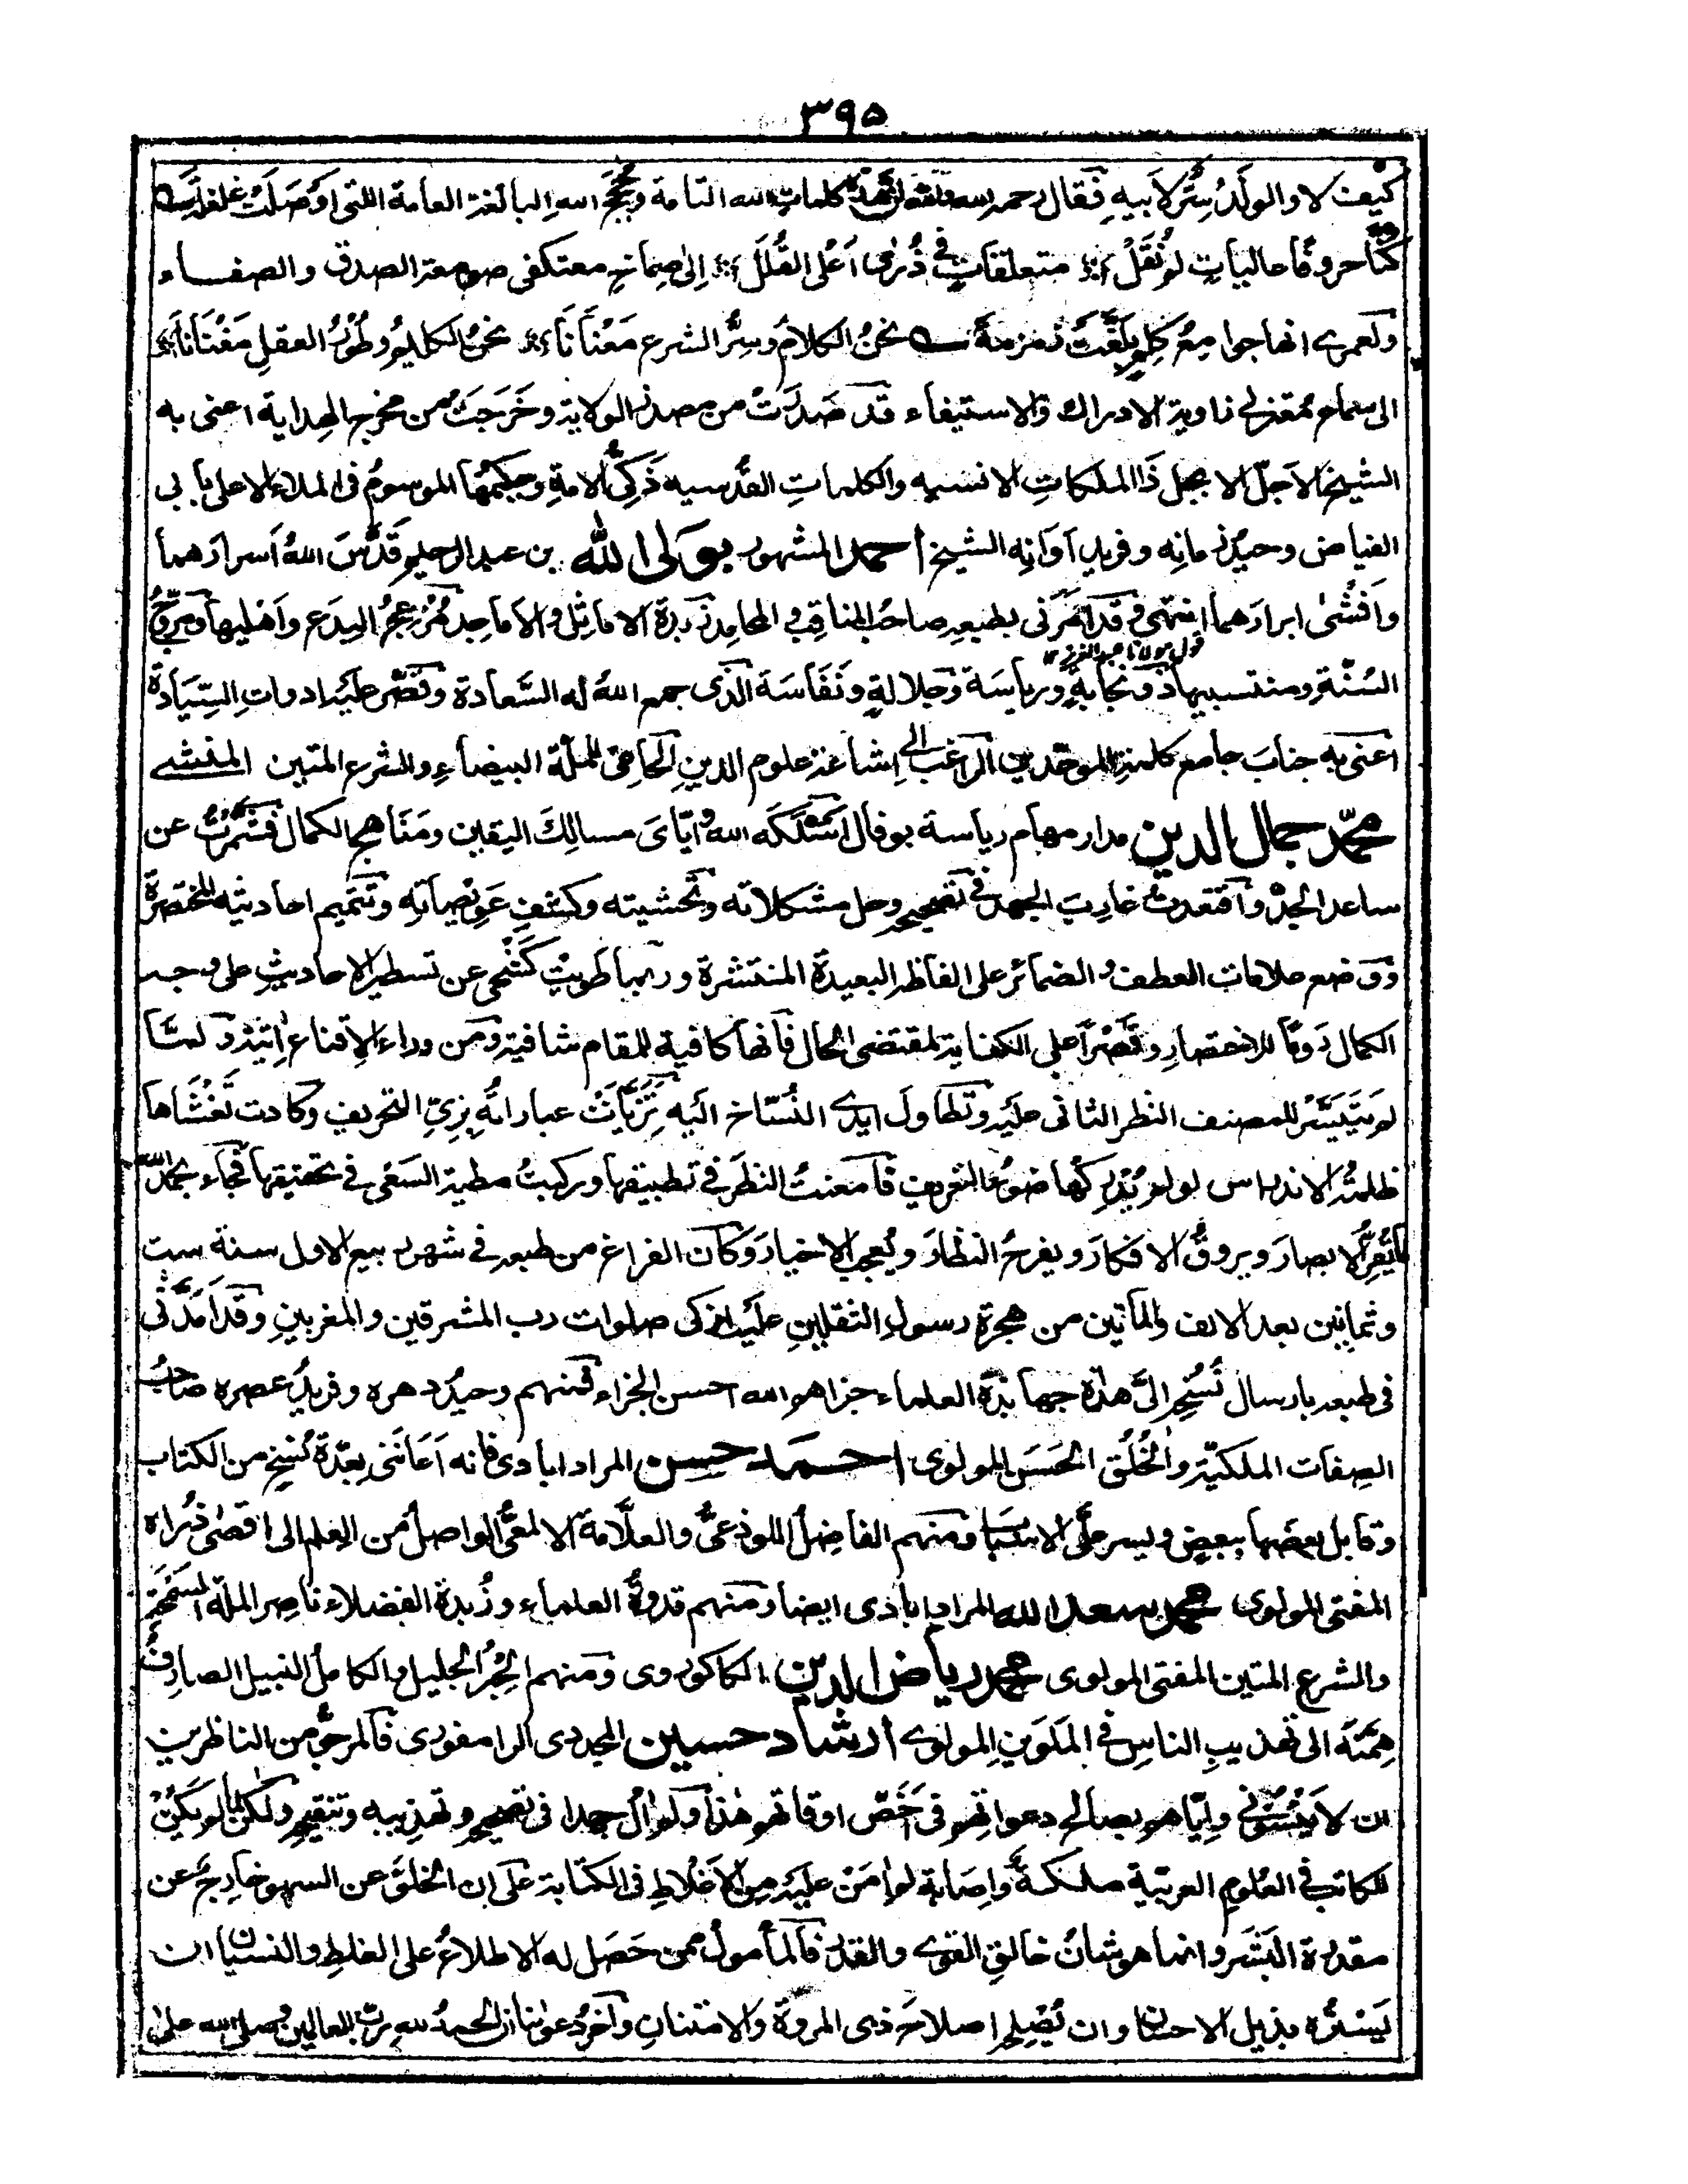 ٣٩۵
كيف لا والولد سر لابيه فقال رحمه الله كلمات الله التامة وحجج الله البالغة العامة اللتى اوصلت
كنا حروفا عاليات لم نقل متعلقات فى ذرى اعلى القلل الى صماخ معتكفى صومعة الصدق والصفاء
ولعمرى انها جوامع كلم بلغت نحن الكلام وسر الشرع معنانا نحن الكليم وطور العقل مغنانا
الى سماع ناوية الادراك والاستيفاء قد صدرت من مصدر الولاية وخرجت من مخرج الهداية اعنى به
الشيخ الاجل الابجل ذا الملكات الانسيه والكلمات القدسيه ذكى الامة وحكيمها الموسوم فى الملاء الاعلى بابى
الفياض وحيد زمانه وفريد آوانه الشيخ احمد المشهور بولى الله بن عبد الرحيم قدس الله أسرارهما
وافشى ابرارهما انتهى وقد امرنى بطبعه صاحب المناقب والمحامد زبدة الاماثل والاماجد مزعج البدع واهليها ومروج
قول مولانا عبد العزيز
السنة ومنتسبيها ذو نجابة ورياسة وجلالة ونفاسة الذى جمع الله له السعادة وقصر عليه ادوات السيادة
اعنى به جناب جامع كلمة الموحدين الراغب الى اشاعة علوم الدين الحامى للملة البيضاء والشرع المتين المنشى
محمد جمال الدين مدار مهام رياسة بوفال اسلكه الله واياى مسالك اليقين ومناهج الكمال فشمرت عن
ساعد الجد واقتعدت غارب الجهد فى تصحيحه وحل مشكلاته وتحشيته وكشف عويصاته وتتميم احاديثه المختصرة
ووضع علامات العطف والضمائر على الفاظه البعيدة المنتشرة وربما طويت كشحى عن تسطير الاحاديث على وجه
الكمال روما للاختصار وقصرا على الكفاية لمقتضى الحال فانها كافية للمقام شافية ومن وراء الاقناع اتيذو لما
لم يتيسر للمصنف النظر الثانى عليه وتطاول ايدى النساخ اليه تزيات عباراته بزى التحريف وكادت تغشاها
ظلمة الاندراس لو لم يدركها ضوء التعريف فامعنت النظر فى تطبيقها وركبت مطية السعى فى تحقيقها فجاء بحمد الله
ما يقر الابصار ويروق الافكار ويفرح النظار ويعجب الاخيار وكان الفراغ من طبعه فى شهر ربيع الاول سنة ست
وثمانين بعد الالف والمأتين من هجرة رسول الثقلين عليه ازكى صلوات رب المشرقين والمغربين وقد امدنى
فى طبعه بارسال نسخه الى هذه جهابذة العلماء جزاهم الله احسن الجزاء فمنهم وحيد دهره وفريد عصره صاحب
الصفات الملكية والخلق الحسن المولوى احمد حسن المرادابادى فانه اعاننى بعدة نسخ من الكتاب
وقابل بعضها ببعض ويسر على الاسباب ومنهم الفاضل اللوذعى والعلامة الالمعى الواصل من العلم الى اقصى ذراه
المفتى المولوى محمد سعد الله المرادابادى ايضا ومنهم قدوة العلماء وزبدة الفضلاء ناصر الملة السمحة
والشرع المتين المفتى المولوى محمد رياض الدين الكاكوروى ومنهم الحبر الجليل والكامل النبيل الصارف
همته الى تهذيب الناس فى الملوين المولوى ارشاد حسين المجددى الرامفورى فالمرجو من الناظرين
ان لا ينسونى واياهم بصالح دعواتهم فى اخص اوقاتهم هذا ولم ال جهدا فى تصحيحه وتهذيبه وتنقيحه ولكن لما لم يكن
للكاتب فى العلوم العربية ملكة واصابة لم امن عليه من الاغلاط فى الكتابة على ان الخلق عن السهو خارج عن
مقدرة البشر وانما هو شان خالق القوى والقدر فالمأمول ممن حصل له الاطلاع على الغلط والنسيان ان
يستره بذيل الاحسان وان يصلحه اصلاح ذى المروة والامتنان وآخر دعوانا ان الحمد لله رب العالمين وصلى الله على